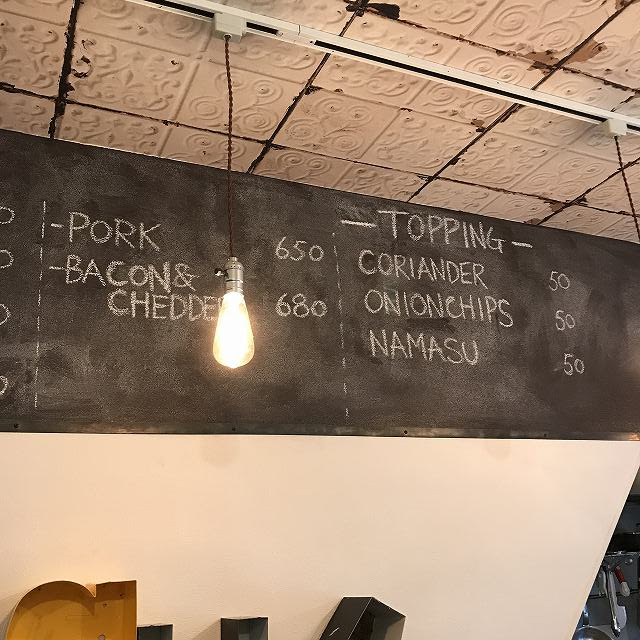 -PORK 650
-BACON&
CHEDDE 680
— TOPPING —
CORIANDER 50
ONIONCHIPS 50
NAMASU 50